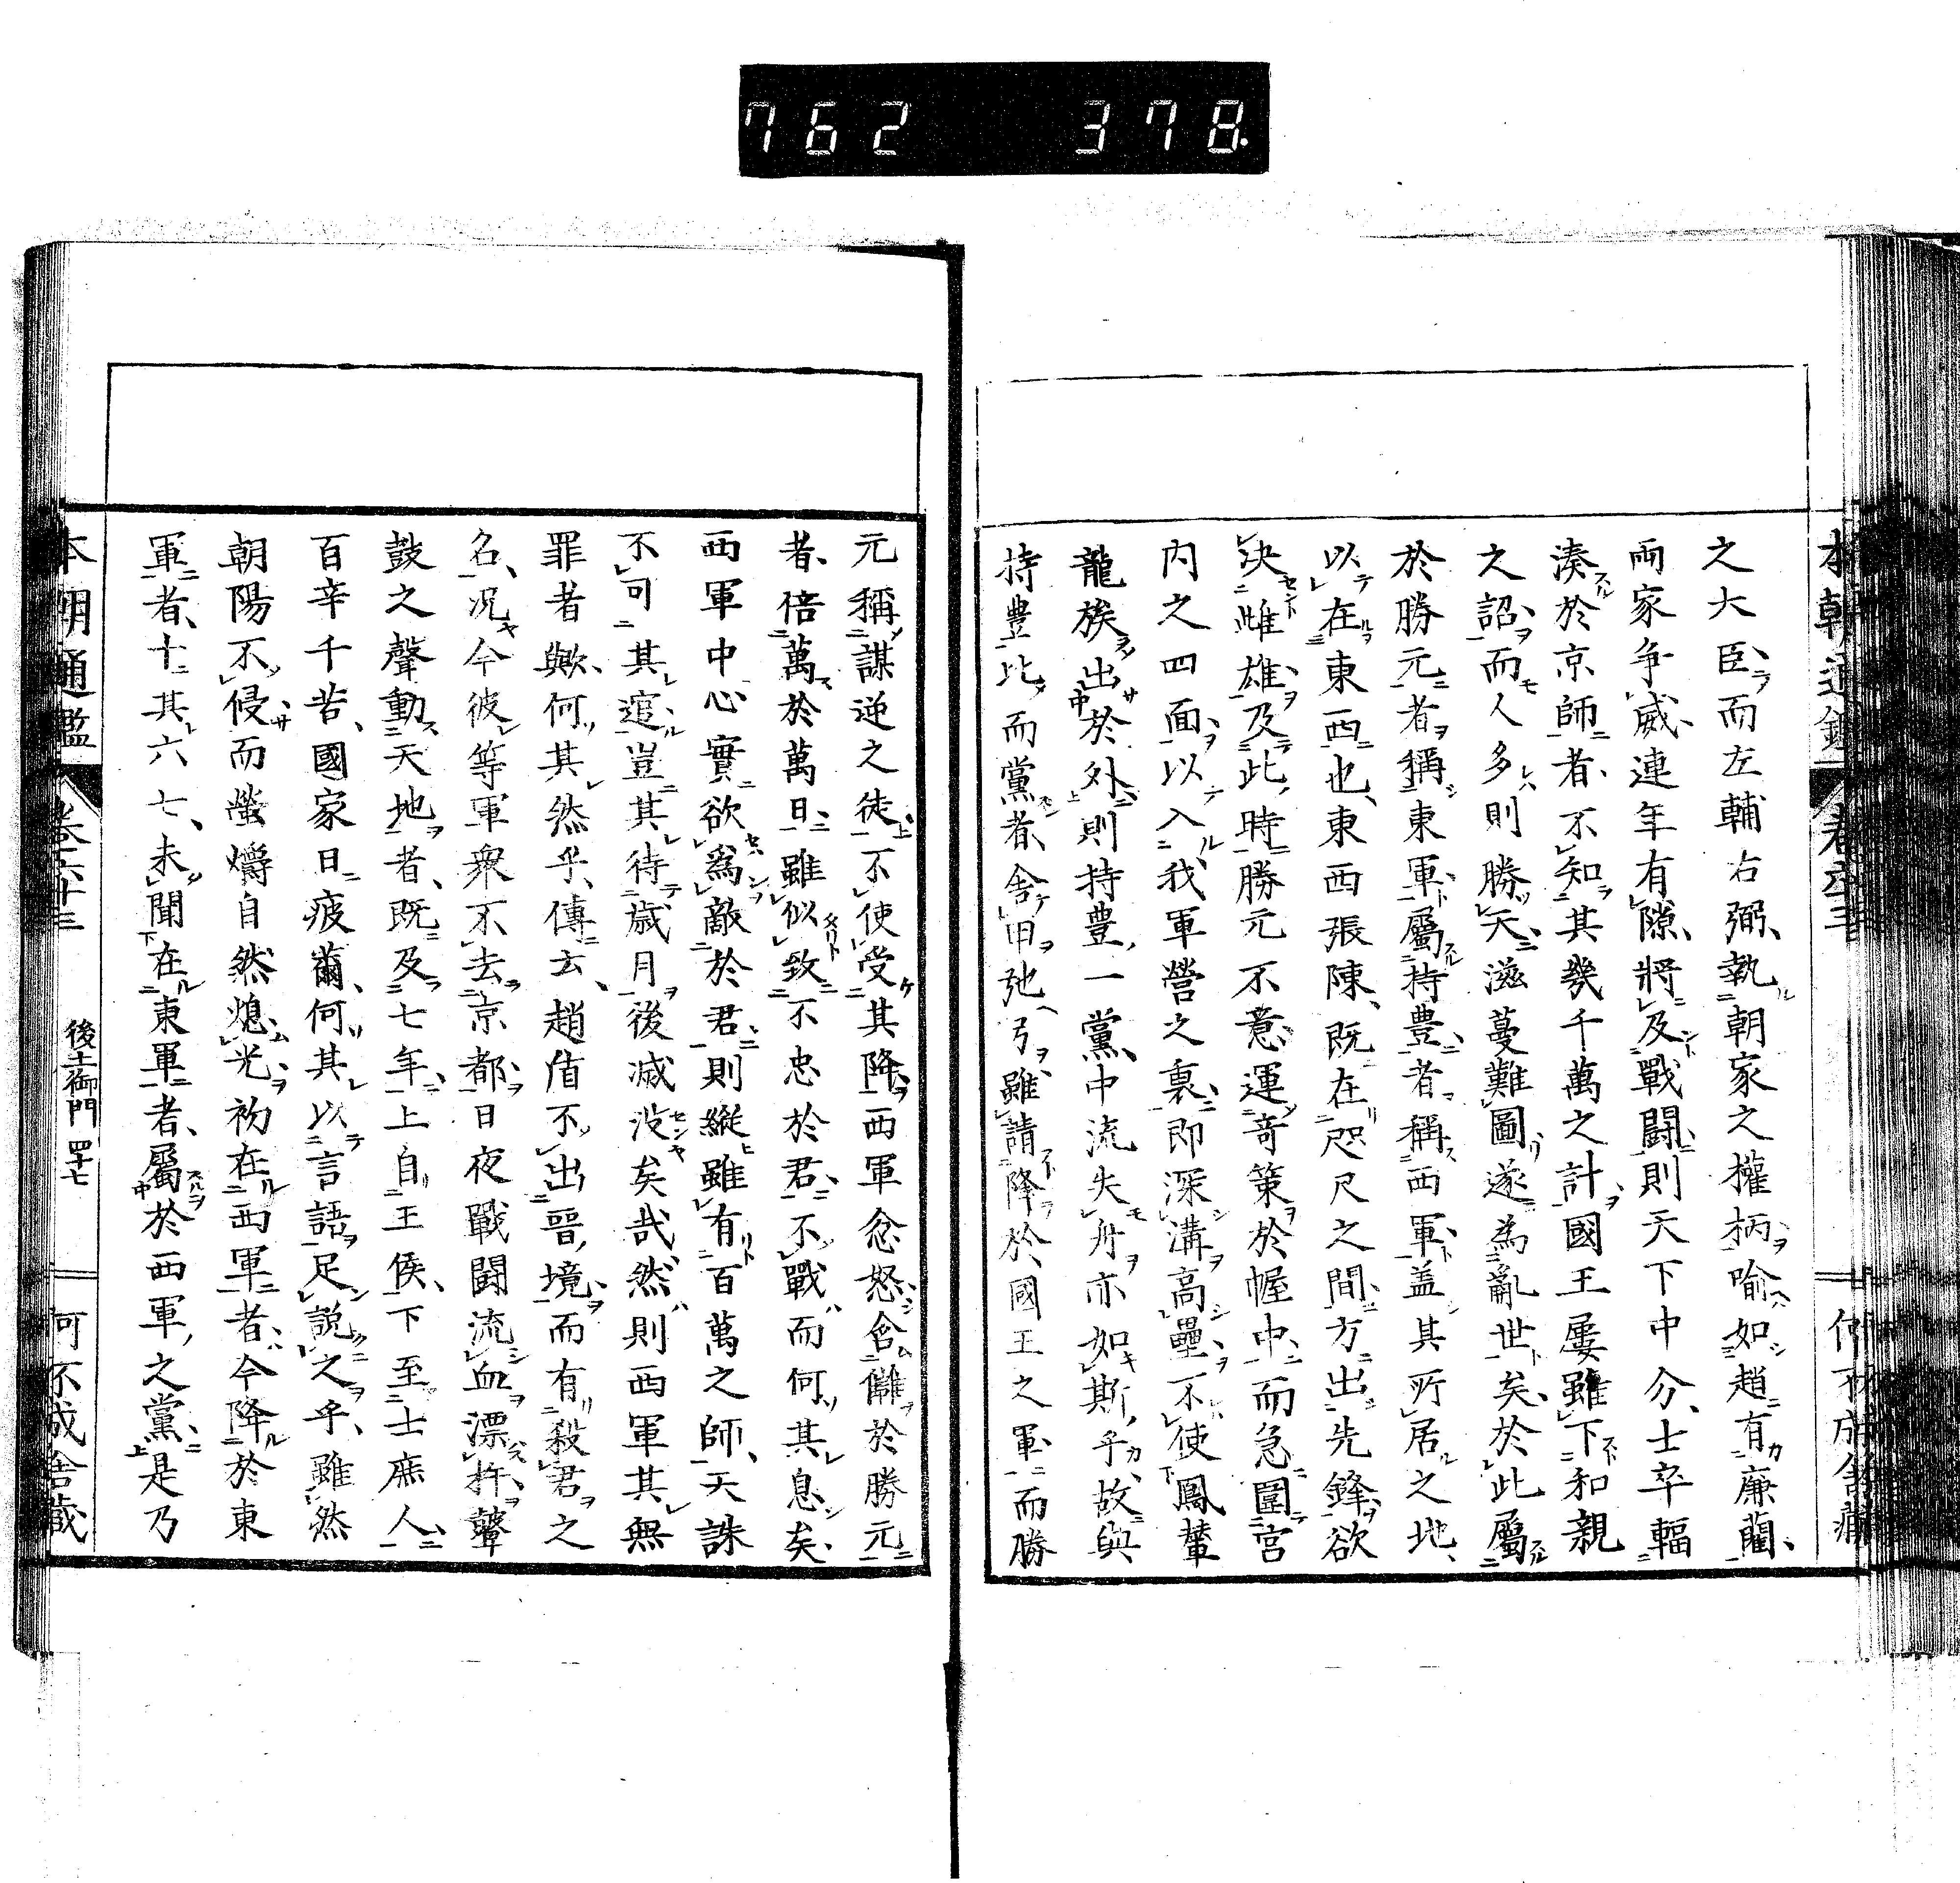 762 378.
本朝通鑑 卷六十三 何不成舎藏
之大臣而左輔右弼執朝家之權柄喻如趙有廉藺
兩家争威連年有隙將及戰鬪則天下中分士卒輻
湊於京師者不知其幾千萬之計國王屢雖下和親
之詔而人多則勝天滋蔓難圖遂為亂世矣於此屬
於勝元者稱東軍屬持豊者稱西軍盖其所居之地
以在東西也東西張陳既在咫尺之間方出先鋒欲
決雌雄及此時勝元不意運竒策於幄中而急圍宮
内之四面以入我軍營之裏即深溝高壘不使鳳輦
龍族出於外則持豊一黨中流失舟亦如斯乎故與
持豊比而黨者舎甲弛弓雖請降於國王之軍而勝
元稱謀逆之徒不使受其降西軍忿怒含讎於勝元
者倍萬於萬日雖似致不忠於君不戰而何其息矣
西軍中心實欲為敵於君則縱雖有百萬之師天誅
不可其逭豈其待歳月後滅没矣哉然則西軍其無
罪者歟何其然乎傳云趙盾不出晉境而有殺君之
名況今彼等軍衆不去京都日夜戰鬪流血漂杵鼙
鼓之聲動天地者既及七年上自王侯下至士庶人
百辛千苦國家日疲薾何其以言語足說之乎雖然
朝陽不侵而螢爝自然熄光初在西軍者今降於東
軍者十其六七未聞在東軍者屬於西軍之黨是乃
本朝通鑑 卷六十三 後土御門 四十七 何不成舎藏